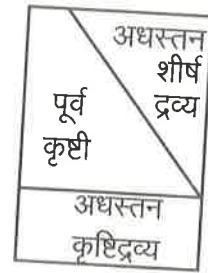 अधस्तन
शीर्ष
द्रव्य
पूर्व
कृष्टी
अधस्तन
कृष्टिद्रव्य